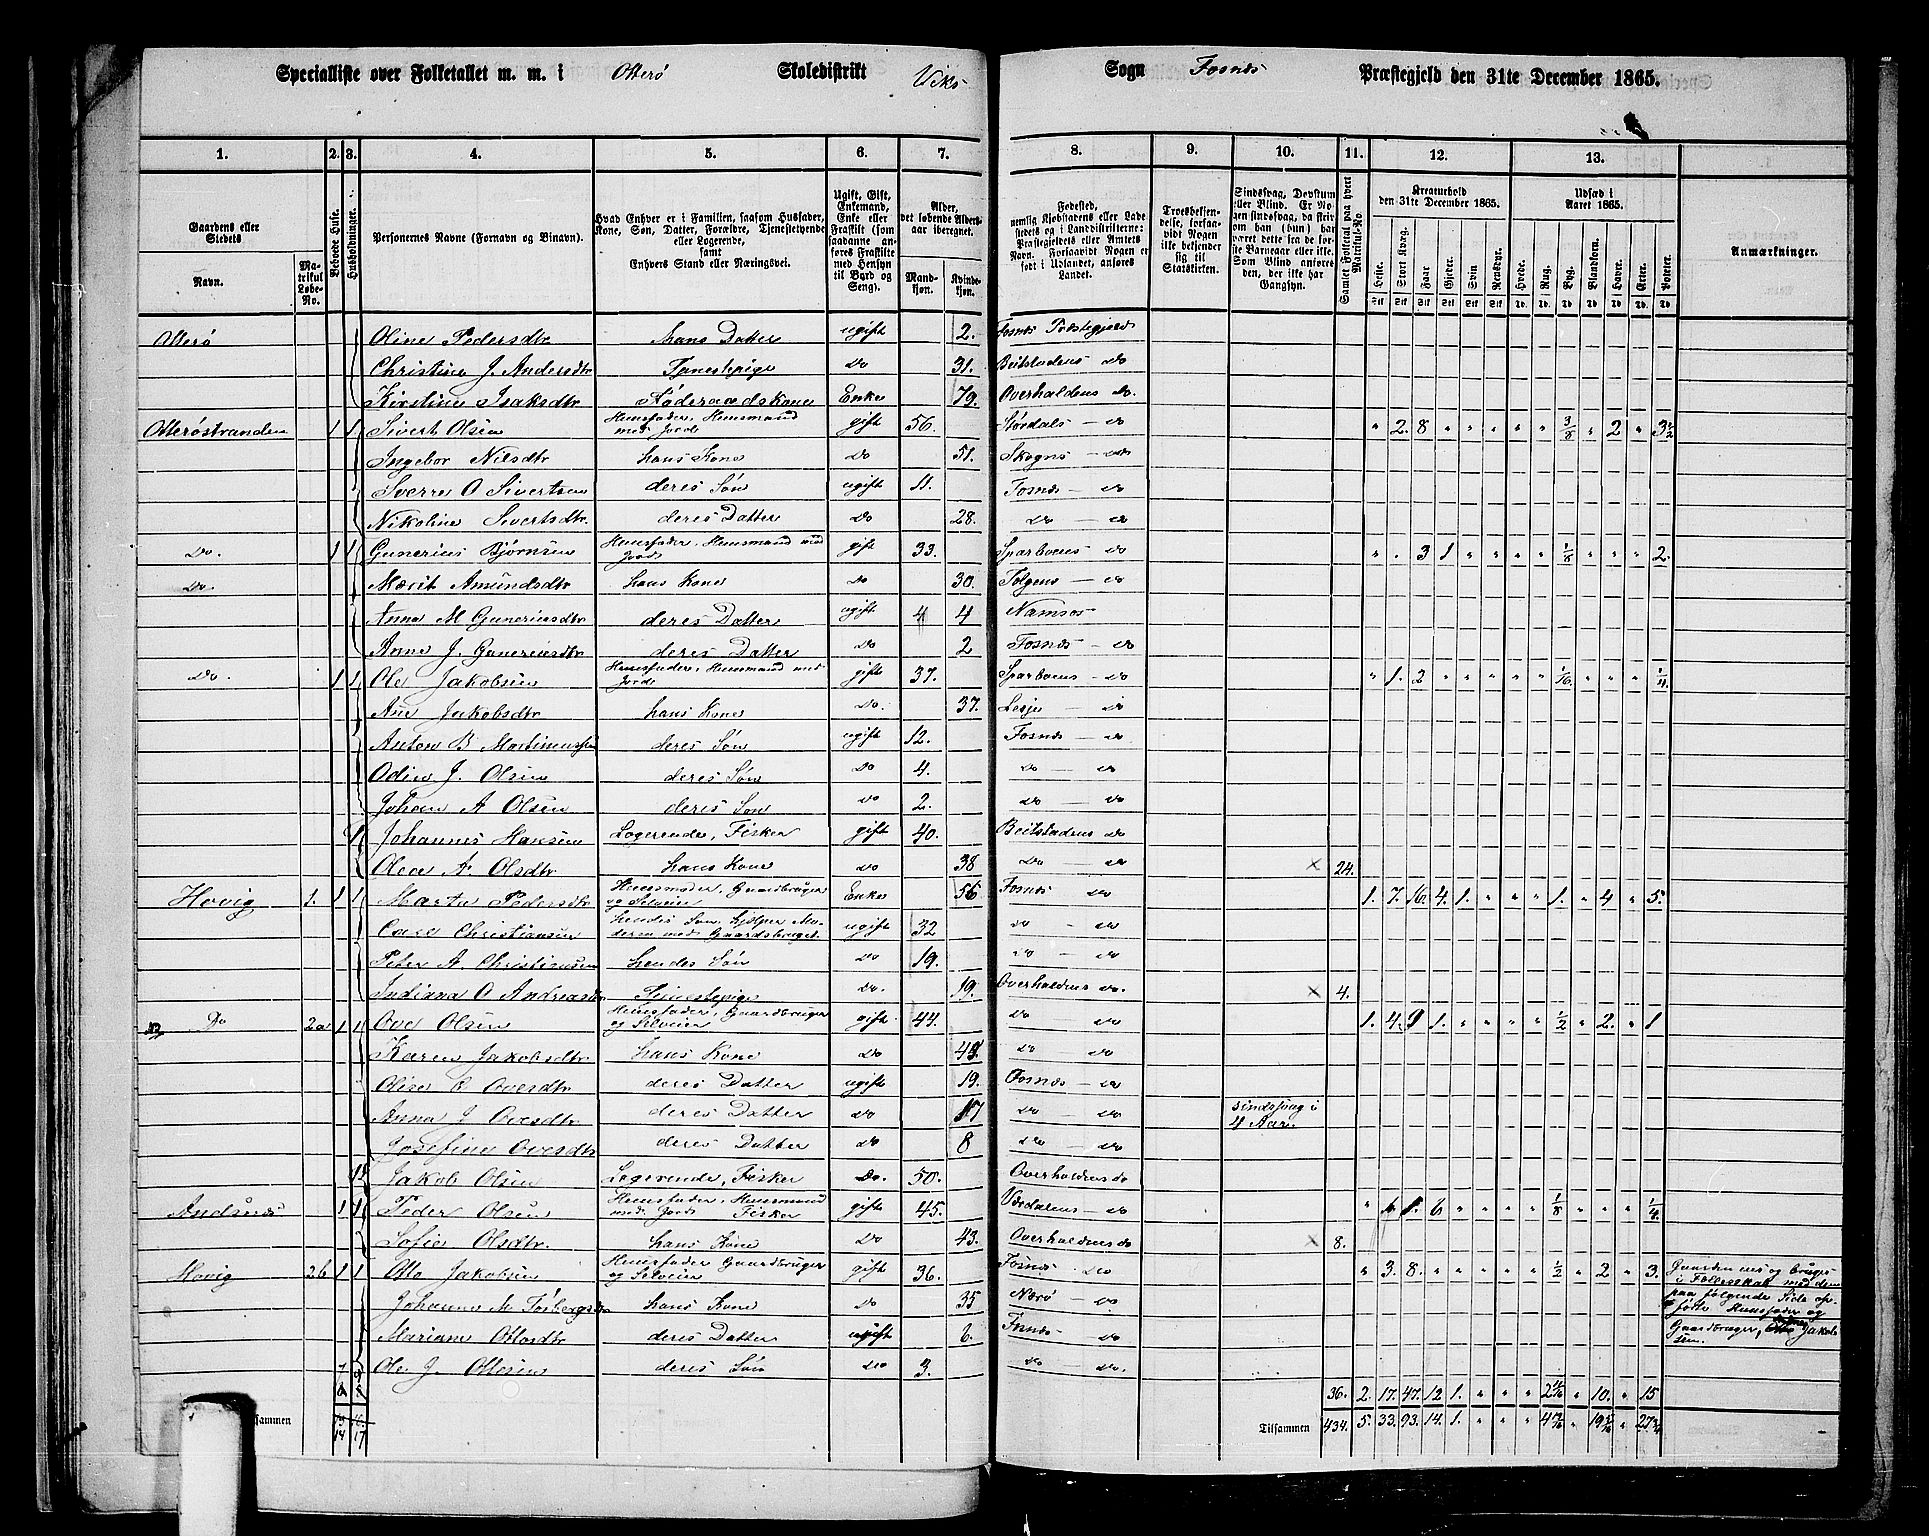 Specialliste over Folketallet m. m. i Otterø Skoledistrikt Viks Sogn Fosnes Præstegjeld den 31te December 1865.
1. 2. 3. 4. 5. 6. 7. 8. 9. 10. 11. 12. 13.
Gaardens eller Stedets
Navn. Matrikul Løbe-No.
Beboede Huse.
Husholdninger.
Personernes Navne (Fornavn og Binavn).
Hvad Enhver er i Familien, saasom Husfader, Kone, Søn, Datter, Forældre, Tjenestetyende eller Logerende, samt Enhvers Stand eller Næringsvei.
Ugift, Gift, Enkemand, Enke eller Fraskilt (som saadanne anføres Fraskilte med Hensyn til Bord og Seng).
Alder, det løbende Aldersaar iberegnet.
Mandkjøn. Kvindekjøn.
Fødested, nemlig Kjøbstadens eller Ladestedets og i Landdistrikterne: Præstegjeldets eller Amtets Navn. Forsaavidt Nogen er født i Udlandet, anføres Landet.
Troesbekjendelse, forsaavidt Nogen ikke bekjender sig til Statskirken.
Samlet Folketal paa hvert Matrikul-No.
Kreaturhold den 31te December 1865.
Heste. Stort Kvæg. Faar. Gjeder. Svin. Rensdyr.
Udsæd i Aaret 1865.
Hvede. Rug. Byg. Blandkorn. Havre. Erter. Poteter.
Anmærkninger.
Otterø Oline Pedersdtr hans Datter ugift 2. Fosnes
Christine J. Andersdtr Tjenestepige Do 31. Beitstadens Do
Kirstine Isaksdtr Føderaadskone Enke 79. Overhaldens Do.
Otterøstranden 1 1 Sivert Olsen Huusfader, Huusmand med Jord gift 56. Størdals Do " 2. 8 " " " " " 3/8 " 2 " 3 1/2
Ingebor Nilsdtr hans Kone Do 51. Skogns Do
Sverre O Sivertsen deres Søn ugift 11. Fosnes Do
Nikoline Sivertsdtr. deres Datter Do 28. Do Do
Do. 1 1 Gunerius Bjørnsen Huusfader, Huusmand med Jord gift 33. Sparboens Do " . 3 1 " " " " 1/8 " " " 2.
Do. Marit Amundsdtr hans Kone Do 30. Tolgens Do
Anna M Guneriusdtr deres Datter ugift 4 Namsos
Anne J. Guneriusdtr deres Datter Do 2 Fosnes Do
Do. 1 1 Ole Jakobsen Huusfader, Huusmand med Jord gift 37. Sparboens Do " 1. 2 " " " " " 1/16 " " " 1/4
Ane Jakobsdtr hans Kone Do. 37. Lesje Do
Anton B Martinussen deres Søn ugift 12. Fosnes Do
Odin J. Olsen deres Søn Do 4. Do Do
Johan A Olsen deres Søn Do 2. Do Do
Johannes Hansen Logerende, Fisker gift 40. Beitstadens Do
Olea A. Olsdtr hans Kone Do 38 Do Do × 24.
Hovig 1. 1 1 Marta Pedersdtr Huusmoder, Gaardbruger og Selveier Enke 56 Fosnes Do 1. 7. 16. 4. 1. " " " 1. " 4 " 5.
Christiansen hendes Søn, hjelper Moderen med Gaardsbruget. ugift 32 Do Do
Peter A. Christiansen hendes Søn Do 19. Do Do
Indiana O Andreasdtr Tjenestepige Do. 19. Overhaldens Do. × 4.
Do 2a 1 1 Ove Olsen Huusfader, Gaardbruger og Selveier gift 44. Do Do 1. 4. 9 1. " " " " 1/2 " 2. " 1
Karen Jakobsdtr hans Kone Do Do Do
Olise O Ovesdtr deres Datter ugift 19. Fosnes Do
Anna J Ovesdtr deres Datter Do 17 Do Do sindssvag i 4 Aar.
Josefine Ovesdtr deres Datter Do 8 Do Do
Jakob Olsen Logerende, Fisker Do. 50. Overhaldens Do
Andsnes 1 1 Peder Olsen Huusfader, Huusmand med Jord Fisker gift 45. Værdalens Do " 1. 6 " " " " 1/8 " " " 1/4
Sofie Olsdtr. hans Kone Do 43. Overhaldens Do × 8.
Hovig 2b 1 1 Otto Jakobsen Huusfader Gaardbruger og Selveier gift 36. Fosnes Do " 3. 8. " " " " " 1/2 " 2 " 3.
Johanna M. Torbergsdtr hans Kone Do 35 Nærø Do
Mariane Ottosdtr deres Datter ugift 6. Fosnes Do
Ole J. Ottesen deres Søn Do 3. Do Do.
Gaarden eies og bruges i Fællesskab med den paa følgende Side opførte Huusfader og Gaardbruger, Jakobsen.
36. 2. 17. 47. 12 1. " " " 2 " 10. " 15
Tilsammen 434. 5. 33. 93. 14. 1. " " " 4 " 19 " 27